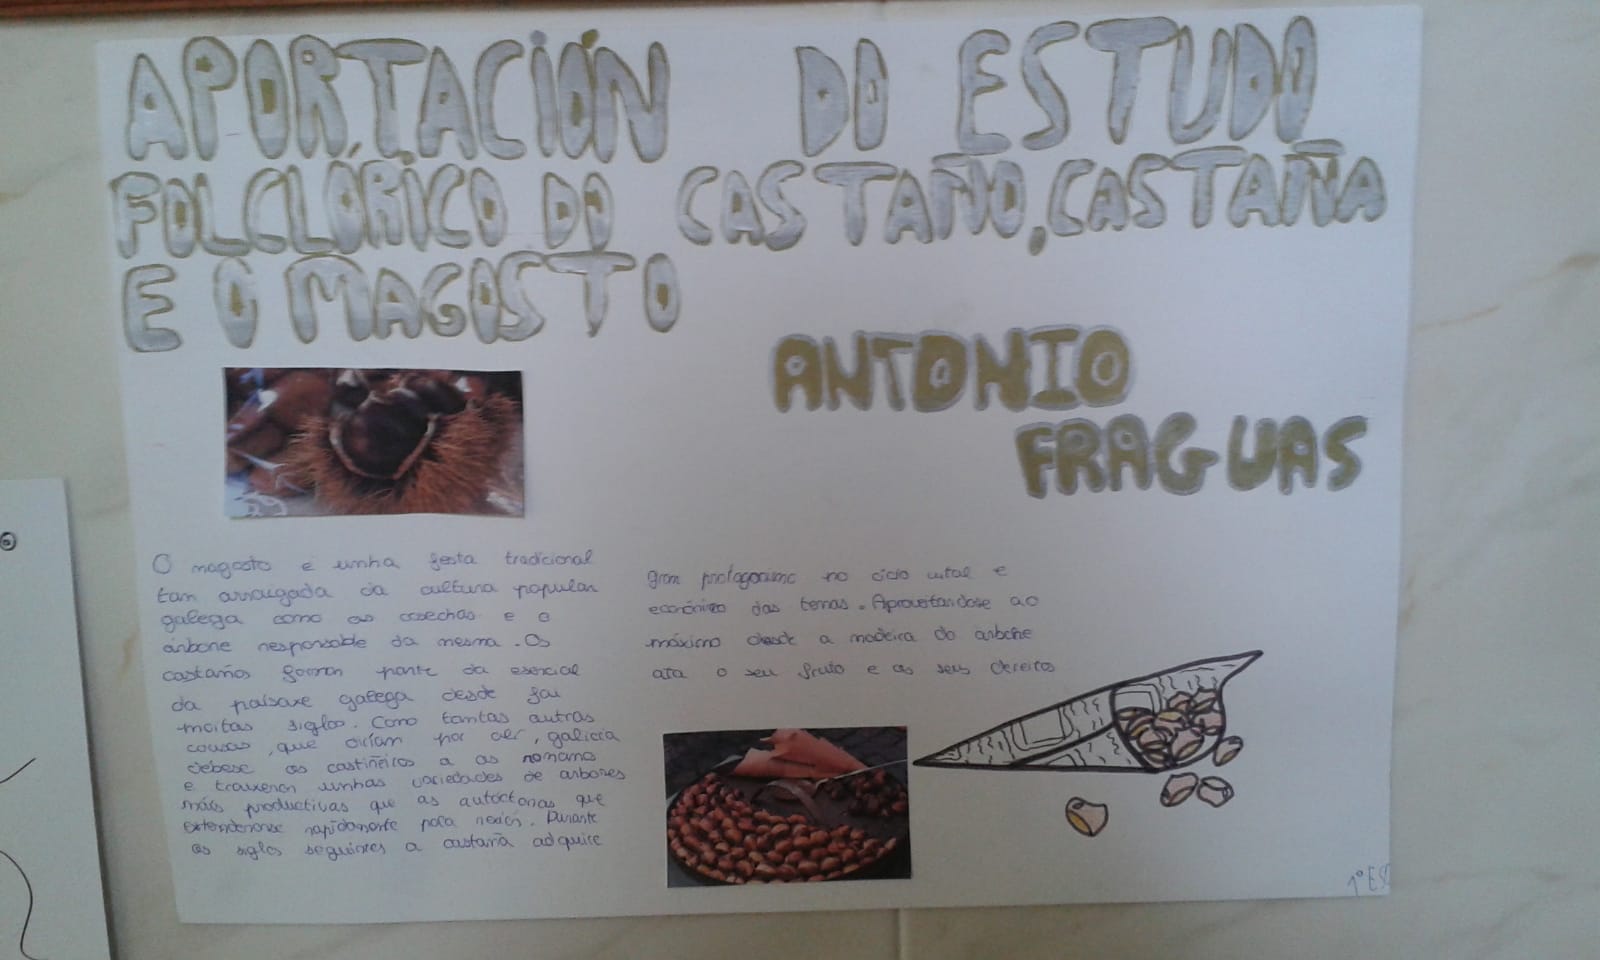 APORTACIÓN DO ESTUDO
FOLCLÓRICO DO CASTAÑO, CASTAÑA
E O MAGOSTO
ANTONIO
FRAGUAS
O magosto e unha festa tradicional
tan arraigada da cultura popular
galega como as cosechas e o
árbore responsable da mesma. Os
castaños forman parte da esencial
da paisaxe galega desde fai
moitas siglos. Como tantas outras
cousas, que dirían por aí, galicia
debese os castiñeiros a os romanos
e traxeron unhas variedades de arbores
máis productivas que as autóctonas que
extenderonse rapidamente pola rexión. Durante
os siglos seguintes a castaña adquire
gran protagonismo no ciclo vital e
económico das terras. Aproveitandose ao
máximo desde a madeira do árbore
ata o seu fruto e os seus dereitos
1º ESO